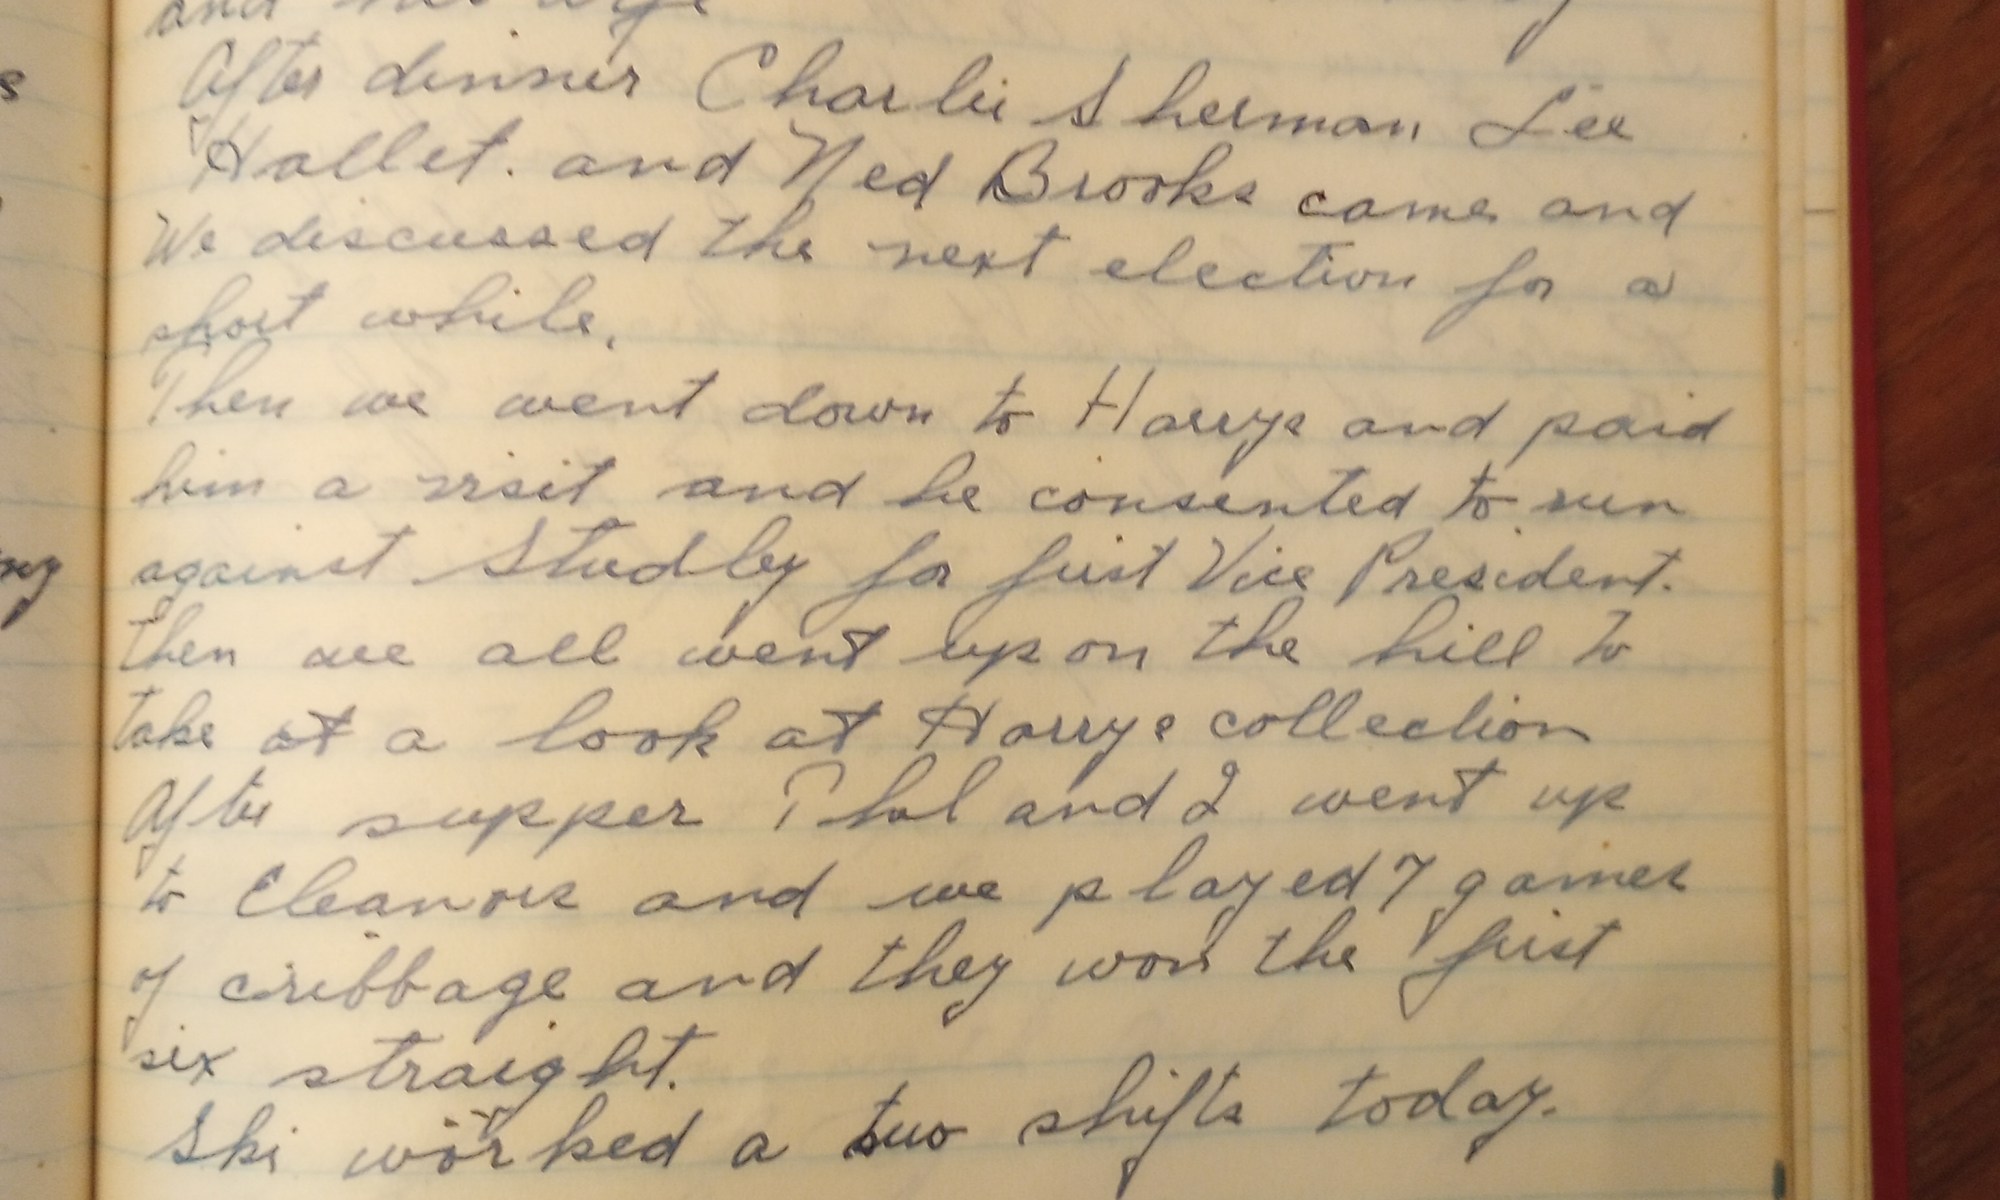 and his wife
After dinner Charlie Sherman Lee
Hallet. and Ned Brooks came and
We discussed the next election for a
short while.
Then we went down to Harrys and paid
him a visit and he consented to run
against Studley for first Vice President.
then we all went up on the hill to
take at a look at Harrys collection
After supper Phil and I went up
to Eleanors and we played 7 games
of cribbage and they won the first
six straight.
Ski worked a two shifts today.